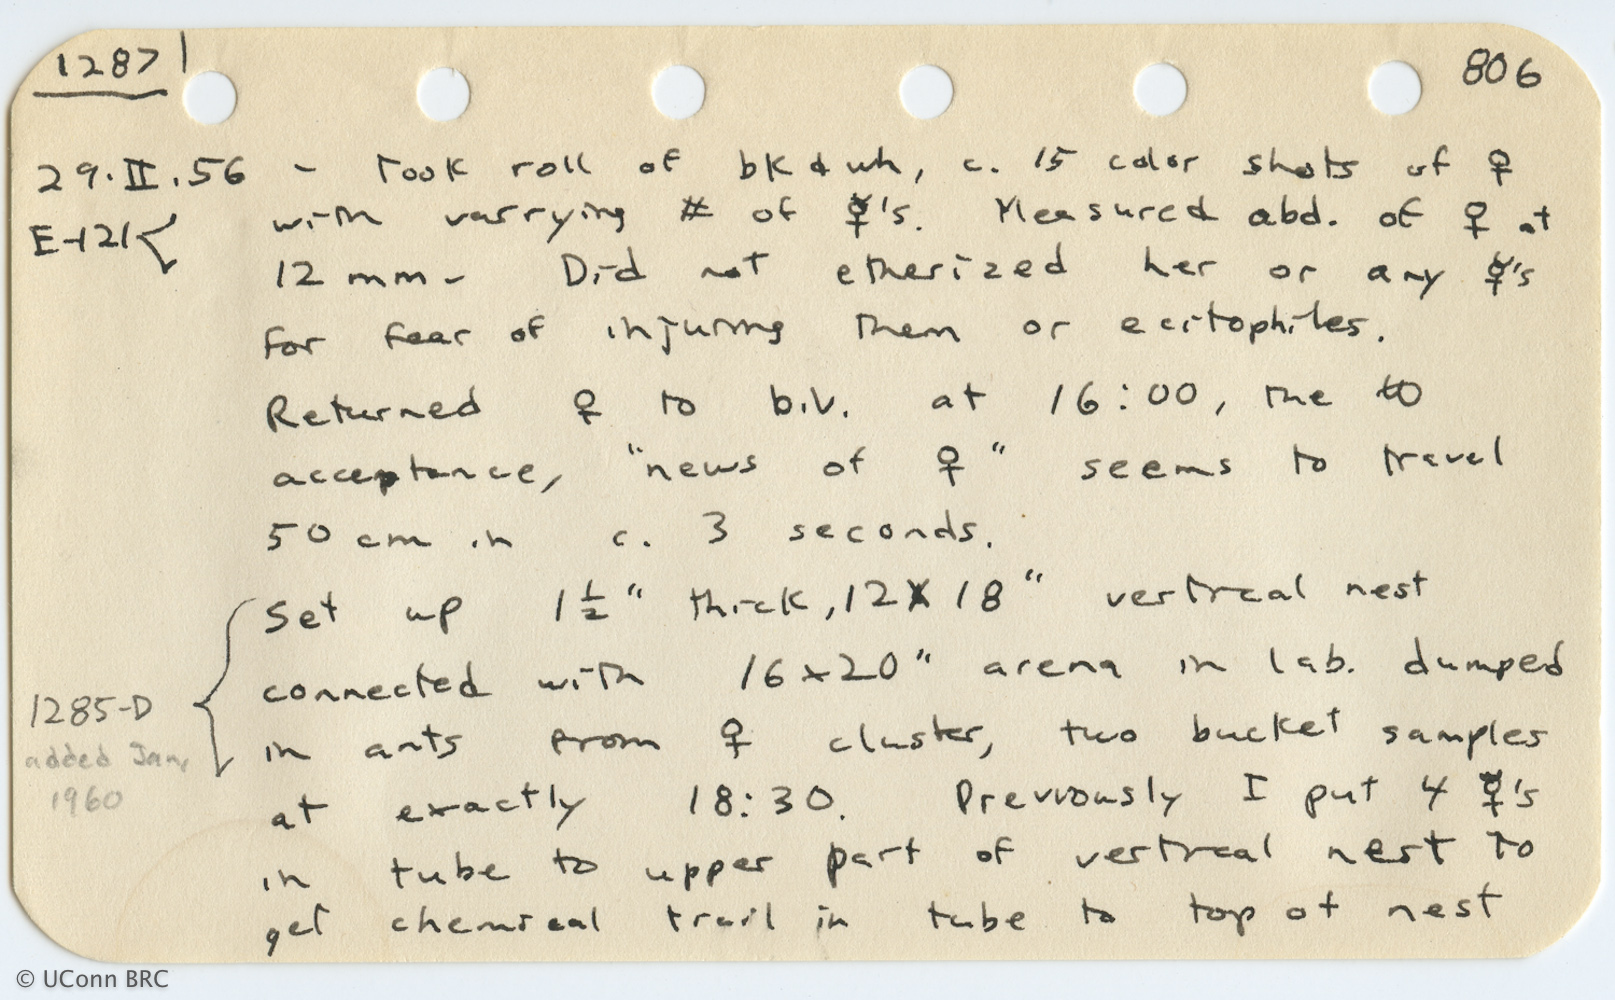 1287 806
29.II.56 - Took roll of bk & wh, c. 15 color shots of ♀
E-121 with varrying # of ☿'s. Measured abd. of ♀ at
12 mm - Did not etherized her or any ☿'s
for fear of injuring them or ecitophiles.
Returned ♀ to biv. at 16:00, the to
acceptance, "news of ♀" seems to travel
50 cm in c. 3 seconds.
Set up 1½" thick, 12 x 18" vertical nest
connected with 16x20" arena in lab. dumped
1285-D
in ants from ♀ cluster, two bucket samples
added Jan,
1960
at exactly 18:30. Previously I put 4 ☿'s
in tube to upper part of vertical nest to
get chemical trail in tube to top of nest
© UConn BRC